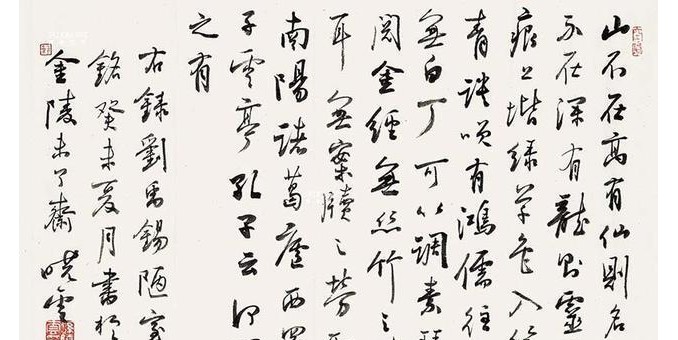 山不在高有仙則名
不在深有龍則靈
痕上堦綠草色入
青談笑有鴻儒往
無白丁可以調素琴
閱金經無絲竹之
耳無案牘之勞
南陽諸葛廬西蜀
子雲亭孔子云何
之有
右錄劉禹錫陋室
銘癸未夏月書於
金陵未了齋曉雲